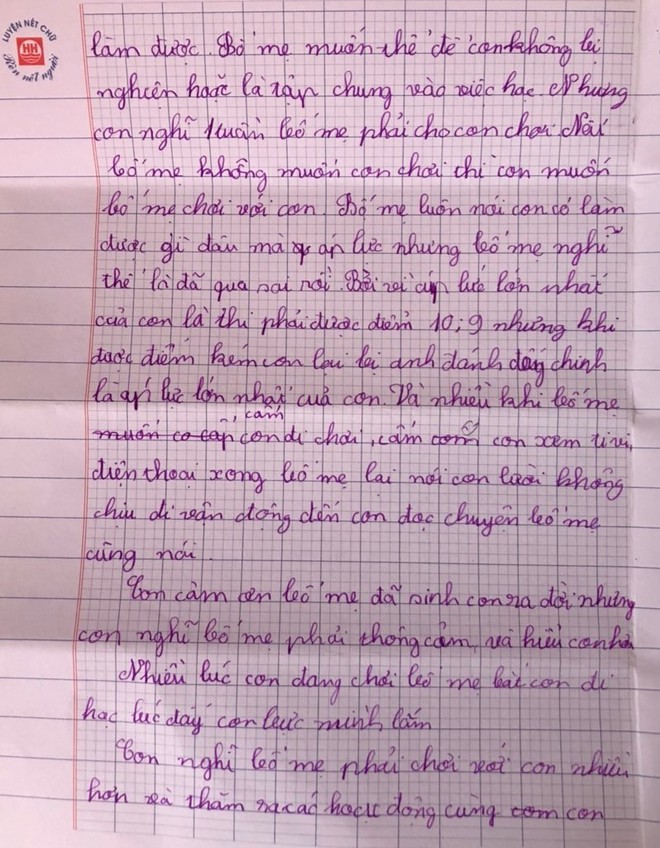 LUYỆN NÉT CHỮ
HH
Rèn nết người
làm được. Bố mẹ muốn thế để con không bị
nghiện hoặc là tập chung vào việc học. Nhưng
con nghĩ 1 tuần bố mẹ phải cho con chơi. Nếu
bố mẹ không muốn con chơi chỉ con muốn
bố mẹ chơi với con. Bố mẹ luôn nói con có làm
được gì đâu mà áp lực nhưng bố mẹ nghĩ
thế là đã quá sai rồi. Bởi vì áp lực lớn nhất
của con là thi phải được điểm 10; 9 nhưng khi
được điểm kém con lại bị anh đánh đấy chính
là áp lực lớn nhất của con. Và nhiều khi bố mẹ
muốn co cấp, cấm con đi chơi, cấm com con xem ti vi,
điện thoại xong bố mẹ lại nói con lười không
chịu đi vận động đến con đọc chuyện bố mẹ
cũng nói.
Con cảm ơn bố mẹ đã sinh con ra đời nhưng
con nghĩ bố mẹ phải thông cảm, và hiểu con hơn
Nhiều lúc con đang chơi bố mẹ bắt con đi
học lúc đấy con bực mình lắm
Con nghĩ bố mẹ phải chơi với con nhiều
hơn và thăm ra các hoạt động cùng com con